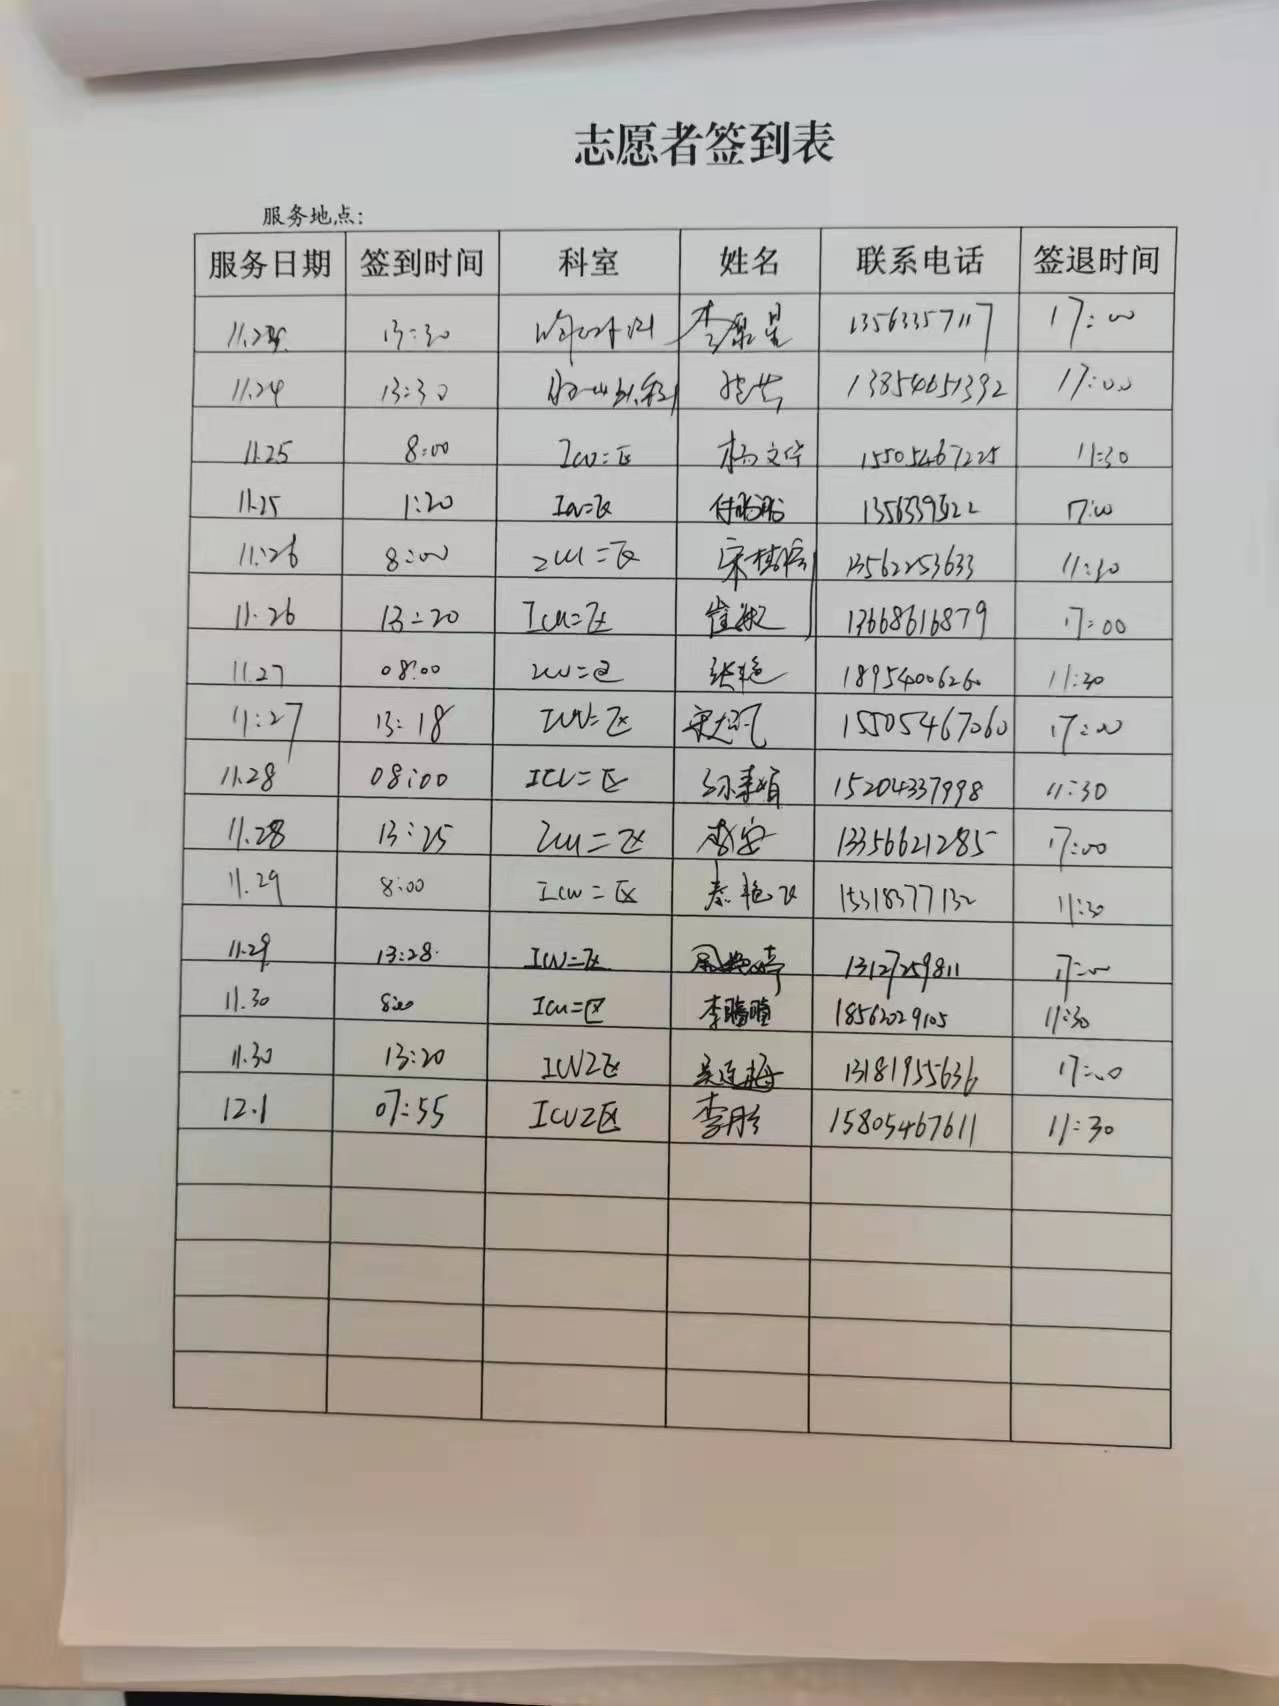 志愿者签到表
服务地点:
服务日期 签到时间 科室 姓名 联系电话 签退时间
13:30 李 星 13563357117 17:00
11.24 13:30 13854651392 17:00
11.25 8:00 ICU二区 杨文 15505467225 11:30
11.25 1:20 ICU二区 付 17:00
11:26 8:00 ICU二区 宋 13562253633 11:30
11.26 13:20 ICU二区 崔 13668616879 17:00
11.27 08:00 ICU二区 张艳 18954006260 11:30
11:27 13:18 ICU二区 15505467060 17:00
11.28 08:00 ICU二区 孙 15204337998 11:30
11.28 13:25 ICU二区 李 13356621285 17:00
11.29 8:00 ICU二区 秦艳 15318377132 11:30
11.29 13:28 ICU二区 婷 13127259811 17:00
11.30 8:00 ICU二区 李 18562029105 11:30
11.30 13:20 ICU2区 吴连梅 13181955636 17:00
12.1 07:55 ICU2区 李彤 15805467611 11:30